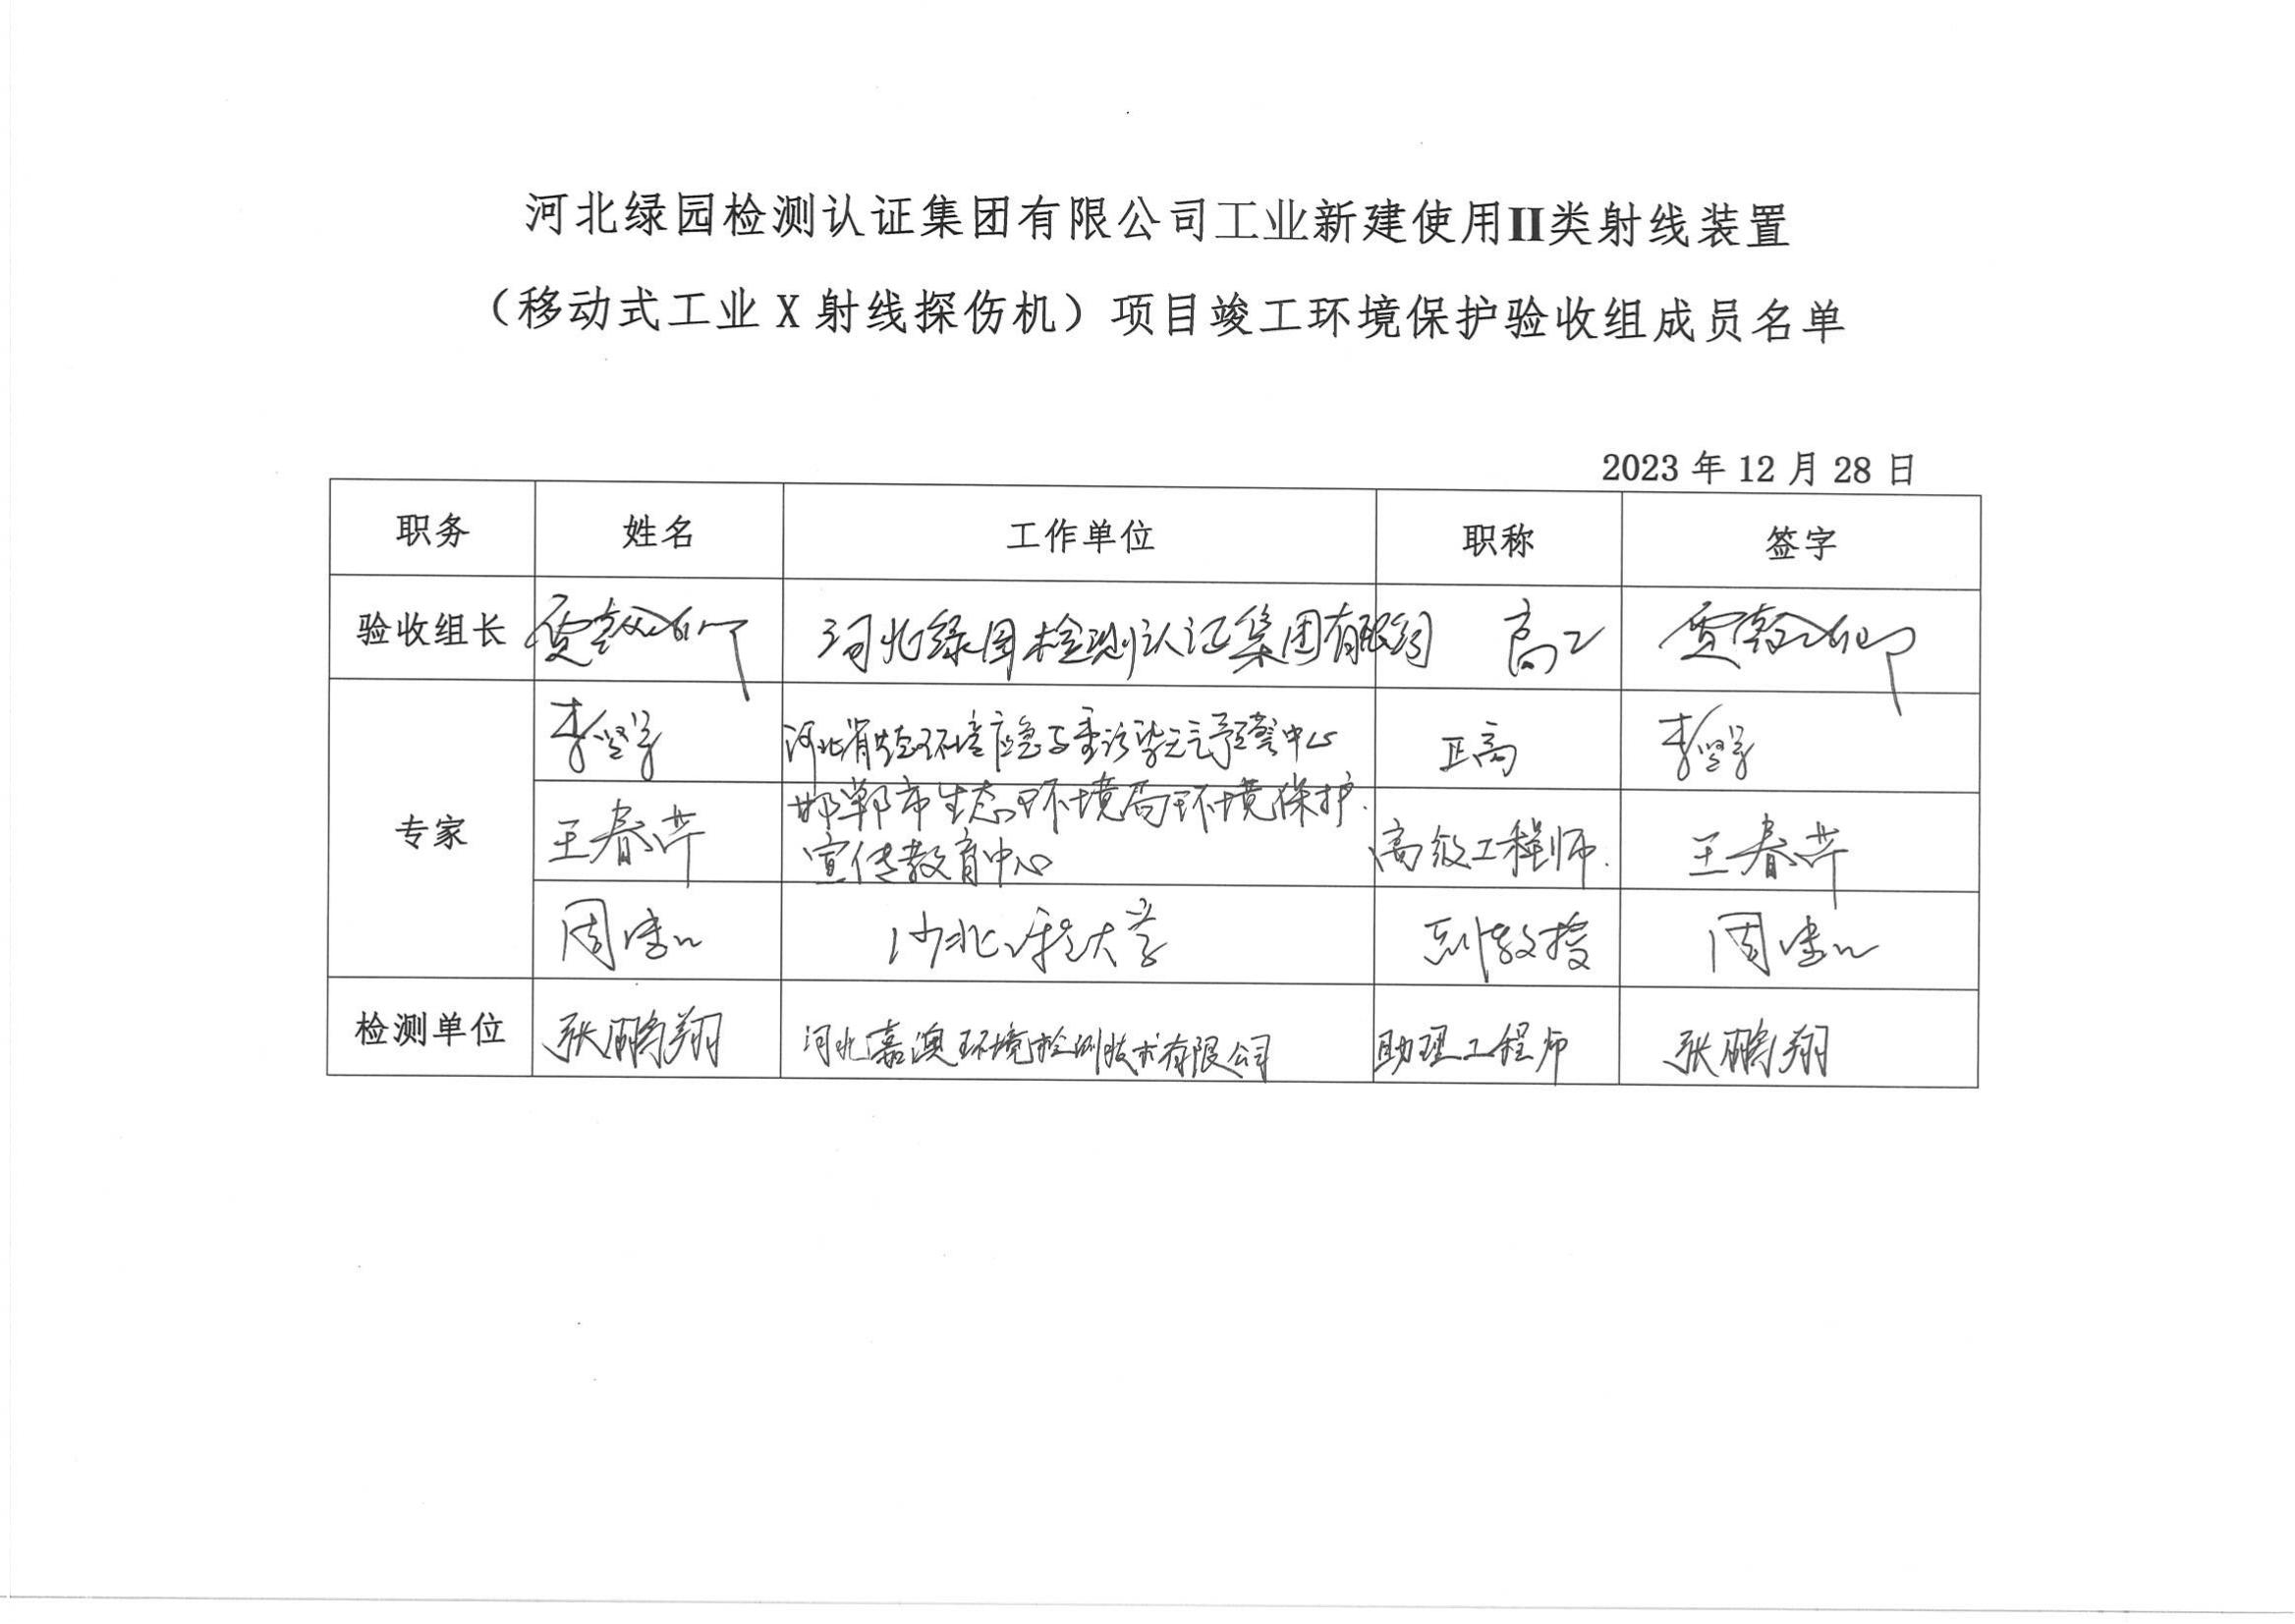 河北绿园检测认证集团有限公司工业新建使用II类射线装置
（移动式工业 X 射线探伤机）项目竣工环境保护验收组成员名单
2023 年 12 月 28 日
职务 姓名 工作单位 职称 签字
验收组长 贾 河北绿园检测认证集团有限公司 高工 贾
专家
李 河北省生态环境应急与重污染天气预警中心 正高 李
王春芹 邯郸市生态环境局环境保护
宣传教育中心 高级工程师. 王春芹
周 河北工程大学 副教授 周
检测单位 张鹏翔 河北嘉澳环境检测技术有限公司 助理工程师 张鹏翔